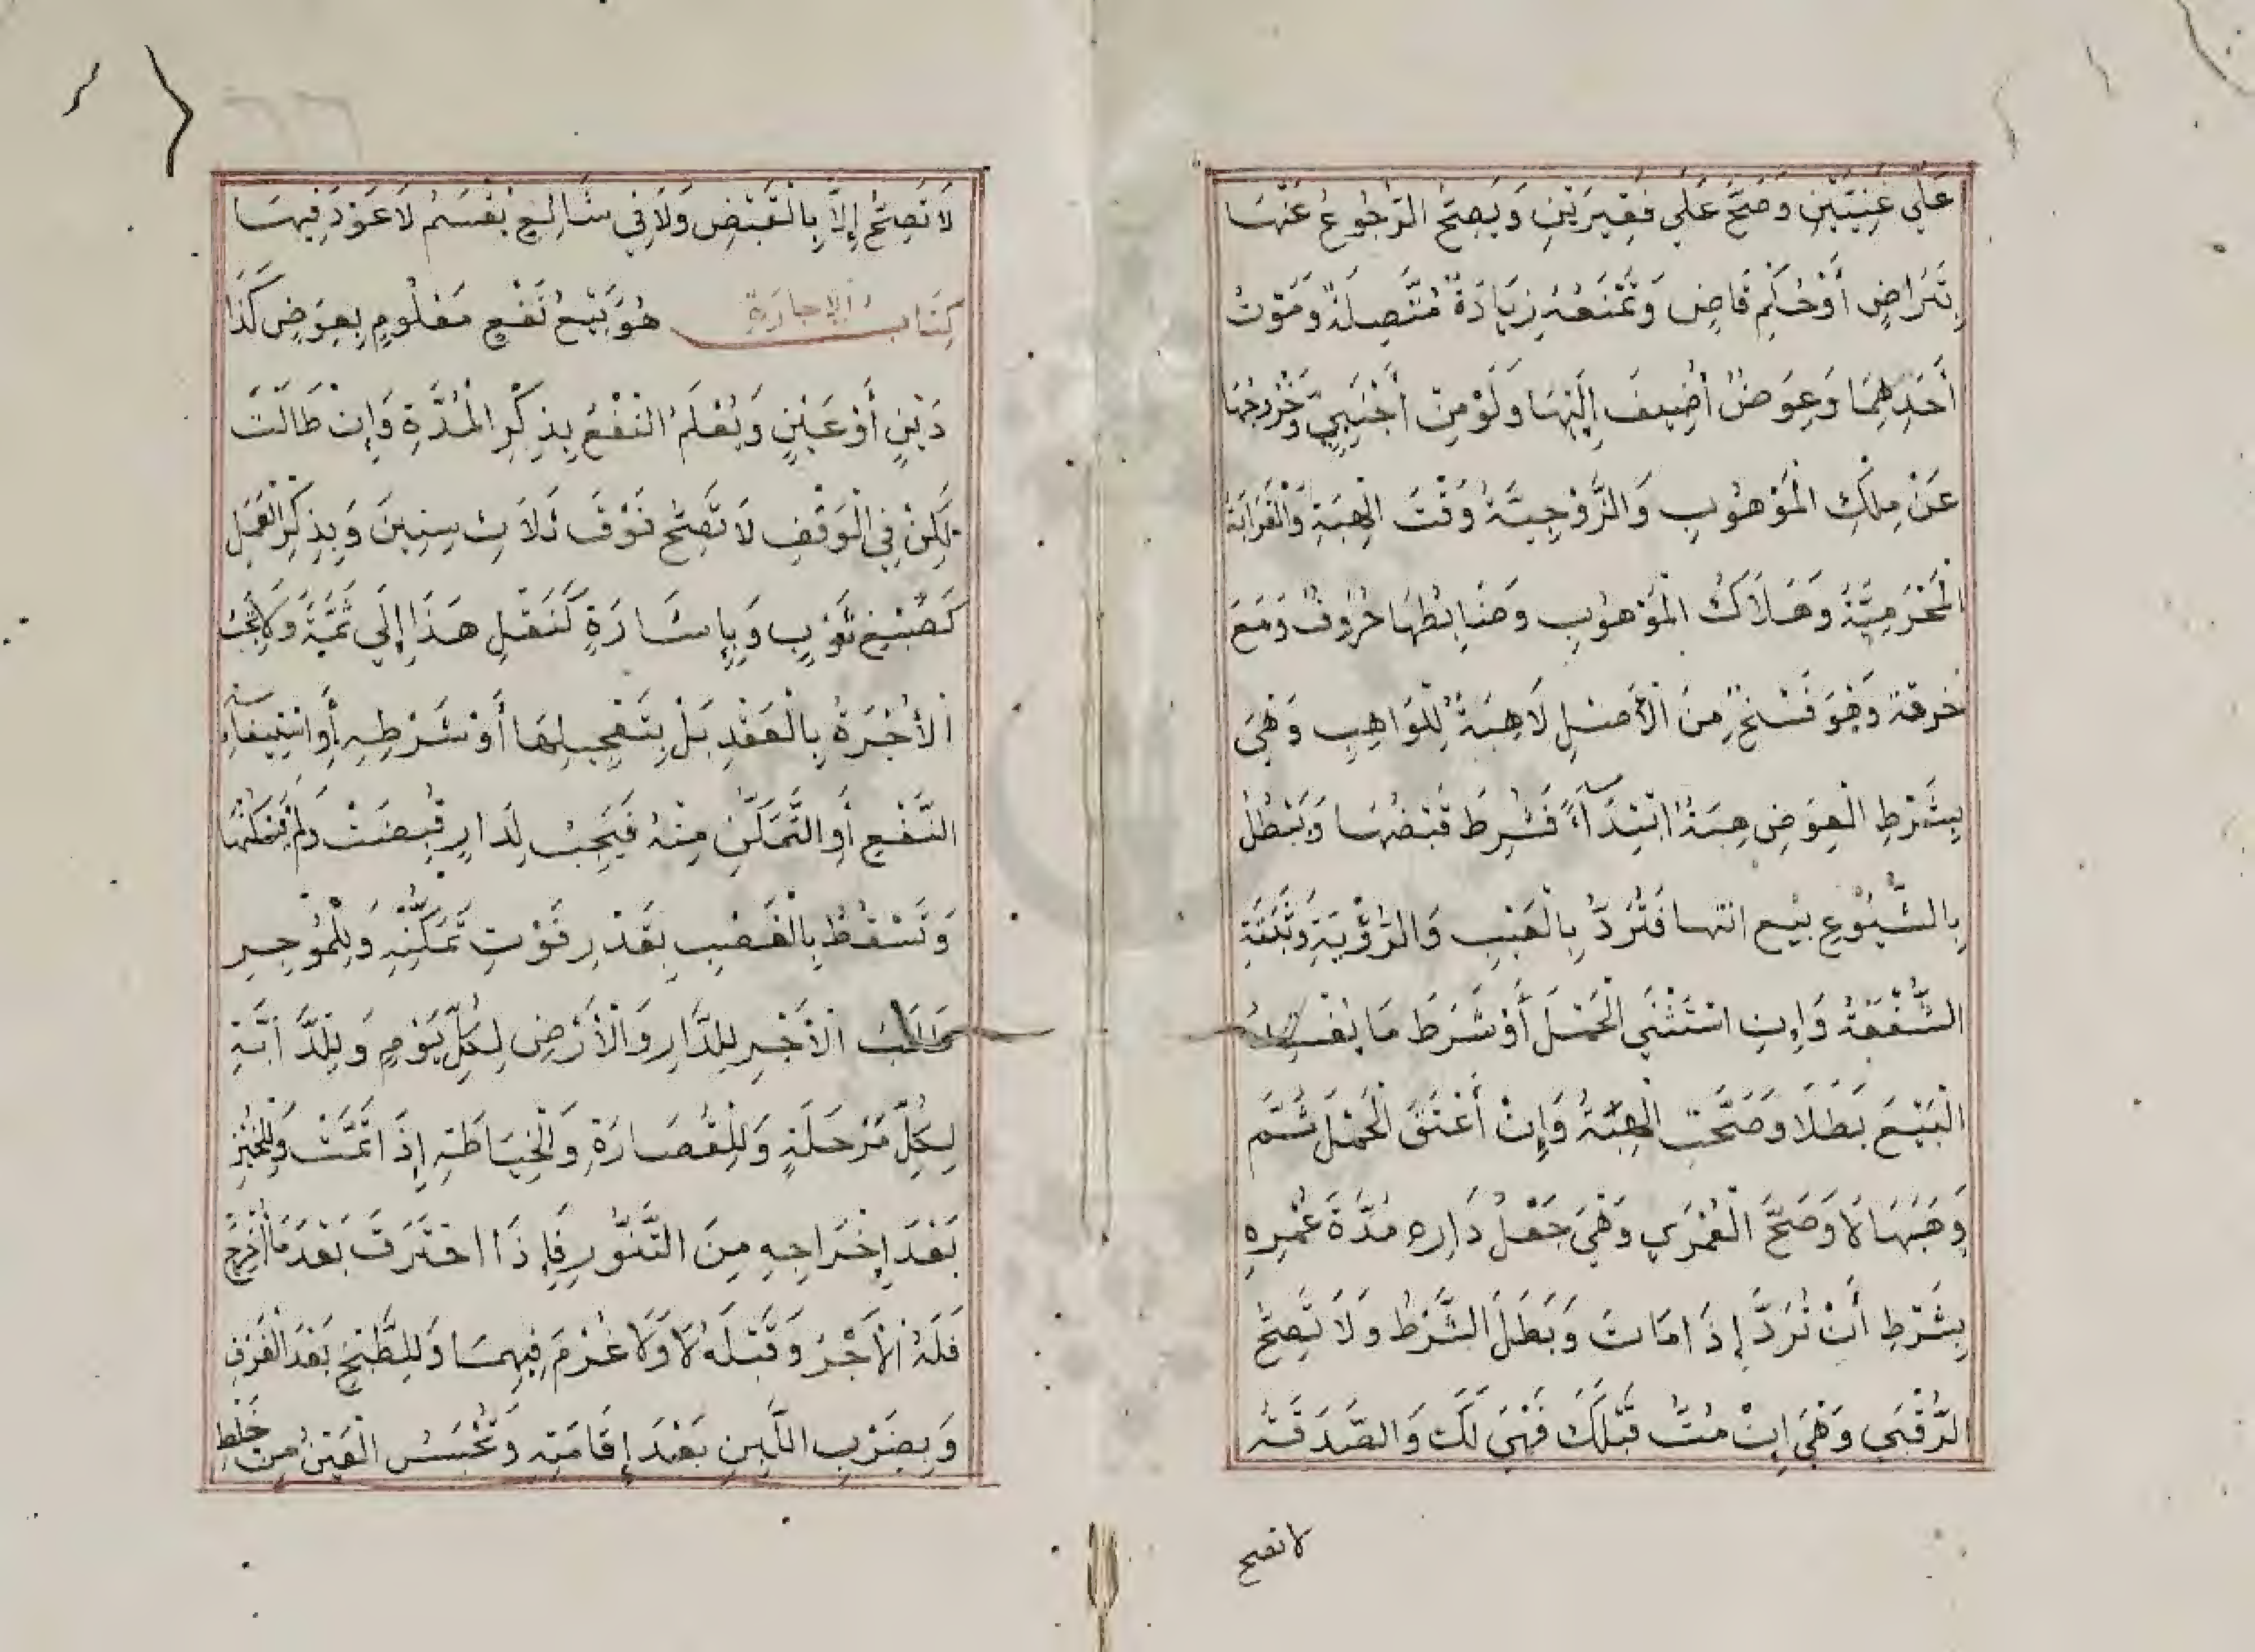 عَلَى غَنِيَّيْنِ وَصَحَّ عَلَى فَقِيرَيْنِ وَيَصِحُّ الرُّجُوعُ عَنْهَا
بِتَرَاضٍ أَوْ حُكْمِ قَاضٍ وَتَمْنَعُهُ زِيَادَةٌ مُتَّصِلَةٌ وَمَوْتُ
أَحَدِهِمَا وَعِوَضٌ أُضِيفَ إِلَيْهَا وَلَوْ مِنْ أَجْنَبِيٍّ وَخُرُوجُهَا
عَنْ مِلْكِ الْمَوْهُوبِ وَالزَّوْجِيَّةُ وَقْتَ الْهِبَةِ وَالْقَرَابَةُ
الْمَحْرَمِيَّةُ وَهَلَاكُ الْمَوْهُوبِ وَضَابِطُهَا حُرُوفُ دَمَعَ
خزقه وَهُوَ فَسْخٌ مِنَ الْأَصْلِ لَا هِبَةٌ لِلْوَاهِبِ وَهِيَ
بِشَرْطِ الْعِوَضِ هِبَةٌ ابْتِدَآءً فَشُرِطَ قَبْضُهَا وَتَبْطُلُ
بِالشُّيُوْعِ بَيْع انتها فَتُرَدُّ بِالْعَيْبِ وَالرُّؤْيَةِ وَتُثْبَتُ
الشُّفْعَةُ وَإِنِ اسْتَثْنَى الْحَمْلَ أَوْ شَرَطَ مَا يُفْسِدُ
الْبَيْعَ بَطَلَا وَصَحَّتِ الْهِبَةُ وَإِنْ أَعْتَقَ الْحَمْلَ ثُمَّ
وَهَبَهَا لَا وَصَحَّ الْعُمْرَى وَهِيَ جَعْلُ دَارِهِ مُدَّةَ عُمْرِهِ
بِشَرْطِ أَنْ تُرَدَّ إِذَا مَاتَ وَبَطَلَ الشَّرْطُ وَلَا تَصِحُّ
الرُّقْبَى وَهِيَ إِنْ مُتُّ قَبْلَكَ فَهِيَ لَكَ وَالصَّدَقَةُ
لا تصح
لَا تَصِحُّ إِلَّا بِالْقَبْضِ وَلَا فِي شَائِعٍ يُقْسَمُ لَا عَوْدَ فِيهَا
كِتَابُ الإِجَارَةِ هُوَ بَيْعُ نَفْعٍ مَعْلُومٍ بِعِوَضٍ كَذَا
دَيْنٍ أَوْ عَيْنٍ وَيُعْلَمُ النَّفْعُ بِذِكْرِ الْمُدَّةِ وَإِنْ طَالَتْ
لَكِنْ فِي الْوَقْفِ لَا تَصِحُّ فَوْقَ ثَلَاثِ سِنِينَ وَبِذِكْرِ الْعَمَلِ
كَصَبْغِ ثَوْبٍ وَبِإِشَارَةٍ كَنَقْلِ هَذَا إِلَى ثَمَّةَ وَلَا تَجِبُ
الْأُجْرَةُ بِالْعَقْدِ بَلْ بِتَعْجِيلِهَا أَوْ شَرْطِهِ أَوِ اسْتِيفَآءِ
النَّفْعِ أَوِ التَّمَكُّنِ مِنْهُ فَيَجِبُ لِدَارٍ قُبِضَتْ وَلَمْ يَسْكُنْهَا
وَتَسْقُطُ بِالْغَصْبِ بِقَدْرِ فَوْتِ تَمَكُّنِهِ وَلِلْمُوجِرِ
طَلَبُ الْأَجْرِ لِلدَّارِ وَالْأَرْضِ لِكُلِّ يَوْمٍ وَلِلدَّابَّةِ
لِكُلِّ مَرْحَلَةٍ وَلِلْقُصَارَةِ وَالْخِيَاطَةِ إِذَا تَمَّتْ وَلِلْخُبْزِ
بَعْدَ إِخْرَاجِهِ مِنَ التَّنُّورِ فَإِذَا احْتَرَقَ بَعْدَمَا أُخْرِجَ
فَلَهُ الْأَجْرُ وَقَبْلَهُ لَا وَلَا غُرْمَ فِيهِمَا وَلِلطَّبْخِ بَعْدَ الْغَرْفِ
وَبِضَرْبِ اللَّبِنِ بَعْدَ إِقَامَتِهِ وَتُحْبَسُ الْعَيْنُ مِنْ خَلْطِ